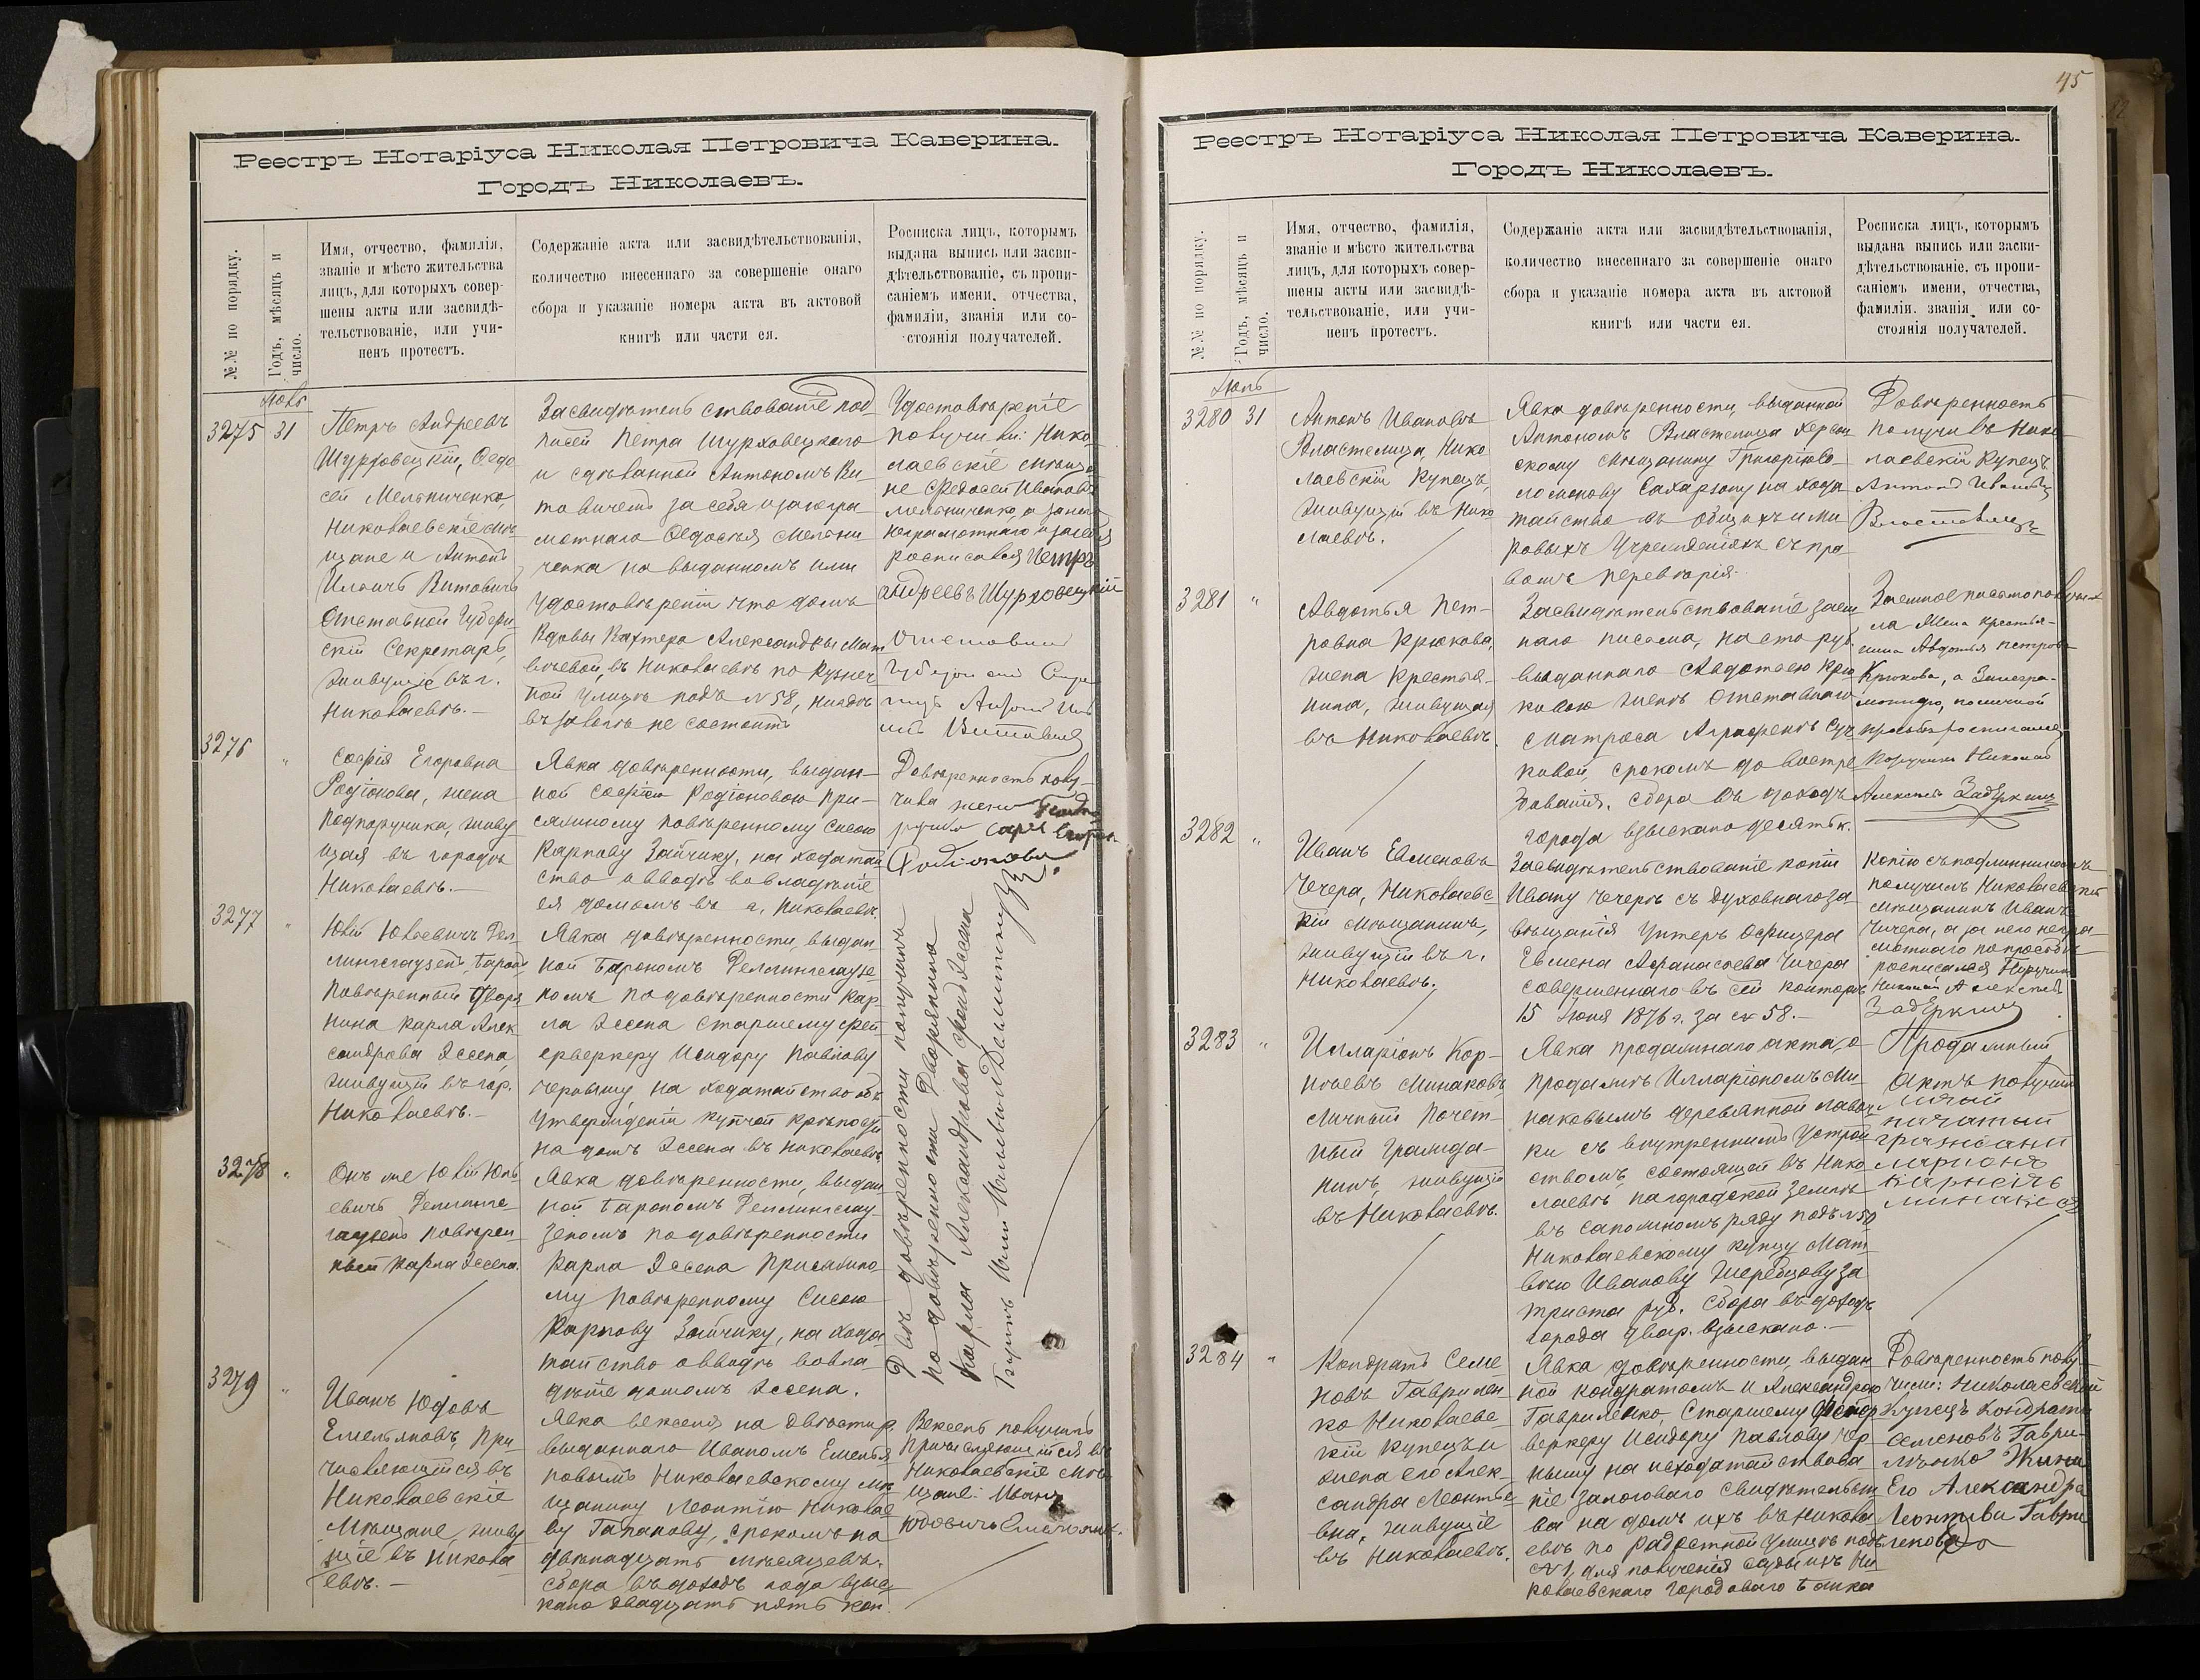 Реестръ Нотаріуса Николая Петровича Каверина.
Городъ Николаевъ.
№.№ по порядку.
Годъ, мѣсяцъ и
число.
Имя, отчество, фамилія,
званіе и мѣсто жительства
лицъ, для которыхъ совер-
шены акты или засвидѣ-
тельствованіе, или учи-
ненъ протестъ.
Содержаніе акта или засвидѣтельствованія,
количество внесеннаго за совершеніе онаго
сбора и указаніе номера акта въ актовой
книгѣ или части ея.
Росписка лицъ, которымъ
выдана выпись или засви-
дѣтельствованіе, съ пропи-
саніемъ имени, отчества,
фамиліи, званія или со-
стоянія получателей.
3275 31
Петръ Андреевъ
Шурховецкій, Ѳедо
сей Мельниченко,
Николаевскіе мѣ
щане и Антонъ
Витовичъ
Отставной Губерн
скій Секретарь,
живущіе въ г.
Николаевѣ.—
Засвидѣтельствованіе под
писей Петра Шурховецкаго
и сдѣланной Антономъ Ви
товичемъ за себя и за негра
мотнаго Ѳедосѣя Мельни
ченка на выданномъ ими
Удостовѣреніи что домъ
Вдовы Вахтера Александры Мат
вѣевой, въ Николаевѣ по Кузнеч
ной улицѣ подъ № 58, нигдѣ
въ залогѣ не состоитъ
Удостовѣреніе
получили: Нико
лаевскіе мѣща
не Федосей Ивановъ
Мельниченко, а за него
неграмотнаго и за себя
росписался Петръ
Андреевъ Шурховецкій
3276 "
Софія Егоровна
Родіонова, жена
подпоручика, живу
щая въ городѣ
Николаевѣ.—
Явка довѣренности, выдан-
ной Софіею Родіоновою при-
сяжному повѣренному Сысою
Карпову Зайчику, на ходатай
ство о вводѣ во владѣніе
ея домомъ въ г. Николаевѣ.
Довѣренность полу
чила жена
Родіонова
3277 "
Юлій Юльевичъ Дел
лингсгаузенъ, Баронъ
повѣренный Дворя
нина Карла Алек
сандрова Эссена,
живущій въ гор.
Николаевѣ.—
Явка довѣренности, выдан-
ной Барономъ Деллингсгаузе
номъ по довѣренности Кар-
ла Эссена Старшему фей
ерверкеру Исидору Павлову
Черныху, на ходатайство объ
утвержденіи купчей крѣпости
на домъ Эссена въ Николаевѣ
3278 "
Онъ же Юлій Юль
евичъ Деллингс
гаузенъ повѣрен
ный Карла Эссена.
Явка довѣренности, выдан
ной Барономъ Деллингсгау-
зеномъ по довѣренности
Карла Эссена Присяжно
му повѣренному Сысою
Карпову Зайчику, на хода
тайство о вводѣ во вла-
дѣніе домомъ Эссена.
Двѣ довѣренности получилъ
по довѣренности Дворянина
Карла Александровича Фонъ Эссена
3279 "
Иванъ Юдовъ
Емельяновъ, при-
числяющійся въ
Николаевскіе
Мѣщане, живу
щіе въ Никола
евѣ.—
Явка векселя, на двѣсти р.
выданнаго Иваномъ Емелья
новымъ Николаевскому мѣ
щанину Леонтію Николае
ву Гапанову, срокомъ на
двѣнадцать мѣсяцевъ.
Сбора въ доходъ года взыс
кано двадцать пять коп.
Вексель получилъ
Причисляющійся въ
Николаевскіе мѣ
щане: Иванъ
Юдовичъ Емельянов.
45
Реестръ Нотаріуса Николая Петровича Каверина.
Городъ Николаевъ.
№.№ по порядку.
Годъ, мѣсяцъ и
число.
Имя, отчество, фамилія,
званіе и мѣсто жительства
лицъ, для которыхъ совер-
шены акты или засвидѣ-
тельствованіе, или учи-
ненъ протестъ.
Содержаніе акта или засвидѣтельствованія,
количество внесеннаго за совершеніе онаго
сбора и указаніе номера акта въ актовой
книгѣ или части ея.
Росписка лицъ, которымъ
выдана выпись или засви-
дѣтельствованіе. съ пропи-
саніемъ имени, отчества,
фамиліи. званія. или со-
стоянія получателей.
3280 31
Антонъ Ивановъ
Властелица, Нико
лаевскій купецъ,
живущій въ Нико
лаевѣ.
Явка довѣренности, выданной
Антономъ Властелица Херсон
скому мѣщанину Григорію
Сахарову на хода
тайство въ общихъ и ми
ровыхъ учрежденіяхъ съ пра
вомъ перевѣрія.
Довѣренность
получилъ Нико
лаевскій купецъ
Антонъ Ивановъ
Властелица
3281 "
Авдотья Пет-
ровна Крюкова,
жена крестья-
нина, живущая
въ Николаевѣ.
Засвидѣтельствованіе заем
наго письма, на сто руб.
выданнаго Авдотьею Крю
ковою женѣ отставнаго
матроса Аграфенѣ Суч
ковой, срокомъ до востре
бованія. Сбора въ доходъ
города взыскано десять к.
Заемное письмо получи
ла жена крестья-
нина Авдотья Петрова
Крюкова, а за негра-
мотную, по личной
просьбѣ росписался
Поручикъ Николай
Алексѣевъ Задеркинъ
3282 "
Иванъ Евменовъ
Чечера, Николаевс
кій мѣщанинъ,
живущій въ г.
Николаевѣ.
Засвидѣтельствованіе копіи
Ивану Чечерѣ съ духовнаго за
вѣщанія Унтеръ Офицера
Евмена Афанасьева Чечера
совершеннаго въ сей конторѣ
15 Іюня 1876 г. за № 58.—
Копію съ подлинникомъ
получилъ Николаевскій
мѣщанинъ Иванъ
Чечера, а за него негра-
мотнаго по просьбѣ
росписался Поручикъ
Николай Алексѣевъ
Задеркинъ
3283 "
Илларіонъ Кор-
нѣевъ Минаковъ,
Личный Почет-
ный Гражда-
нинъ, живущій
въ Николаевѣ.
Явка продажнаго акта, о
продажѣ Илларіономъ Ми-
наковымъ деревянной лавоч
ки съ внутреннимъ устрой
ствомъ, состоящей въ Нико
лаевѣ на городской землѣ
въ сапожномъ ряду подъ № 50
Николаевскому купцу Мат
вѣю Иванову Жеребцову за
триста руб. Сбора въ доходъ
города два р. взыскано.—
Продажный
актъ получилъ
личный
3284 "
Кондратъ Семе
новъ Гаврилен
ко Николаевс
кій купецъ и
жена его Алек-
сандра Леонтье
вна, живущіе
въ Николаевѣ.
Явка довѣренности, выдан
ной Кондратомъ и Александрою
Гавриленко, Старшему Фейер
веркеру Исидору Павлову Чер
ныху на исходатайствова
ніе залоговаго свидѣтельст
ва на домъ ихъ въ Никола
евѣ по Радретной улицѣ подъ
№ 1, для полученія ссуды изъ Ни
колаевскаго Городоваго Банка
Довѣренность полу
чили: Николаевскій
Купецъ Кондратъ
Семеновъ Гаври-
ленко Жина
Его Александра
Леонтива Гаври